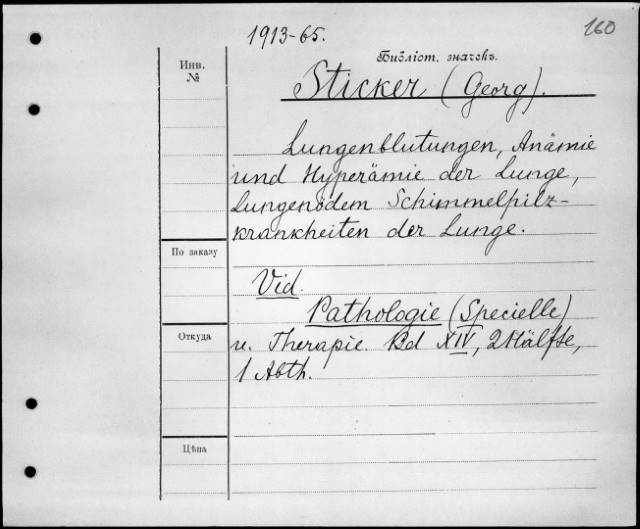 1913-65.
160
Библіот. значекъ.
Инв.
№
Sticker (Georg).
Lungenblutungen, Anämie
und Hyperämie der Lunge,
Lungenödem Schimmelpilz-
krankheiten der Lunge.
По заказу
Vid.
Pathologie (Specielle)
Откуда
u. Therapie. Bd XIV, 2 Hälfte,
1 Abth.
Цѣна